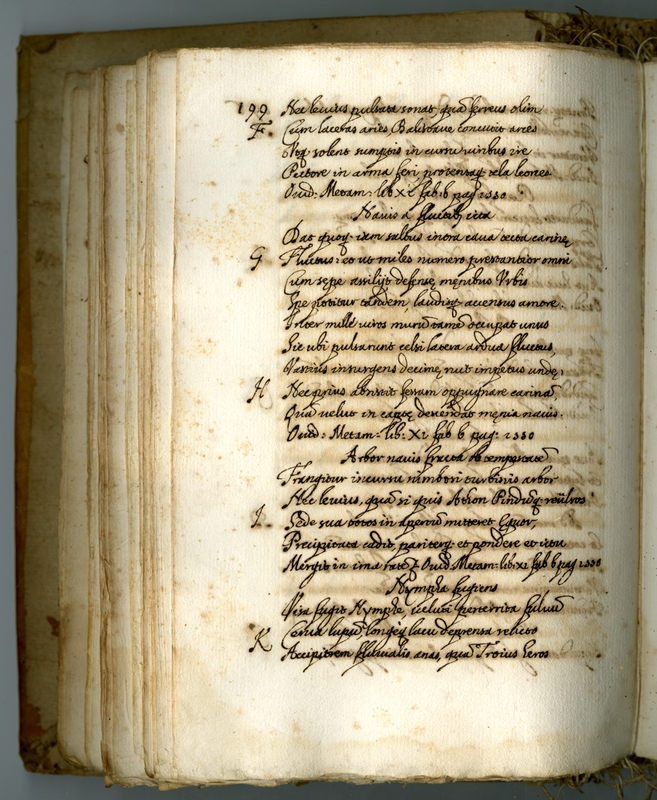 199 Nec levius pulsata sonat quã ferreus olim
F. Cum laceras aries Balistave concutit arces
Utq. solent sumptis in cursu viribus ire
Pectore in arma feri, protensaq. tela leones.
Ovid: Metam: lib XI fab. 6 pag 1330
Navis a fluctib. icta
Dat quoq. iam saltus intra cava texta carinę
G Fluctus: et ut miles numero prestantior omni
Cum sępe assilijt defensę męnibus Urbis
Spe potitur tandem, laudisq. accensus amore.
Inter mille viros murũ tamẽ occupat unus
Sic ubi pulsarunt celsi latera ardua fluctus,
Vastius insurgens decimę ruit impetus undę:
H Nec prius absistit fessam oppugnare carinã
Quã velut in captę descendat męnia navis.
Ovid: Metam: lib: XI fab 6 pag: 1330
Arbor navis fracta tempestate
Frangitur incursu nimbosi turbinis arbor
Nec levius, quã si quis Athon Pindũq. revulsos
I. Sede sua totos in apertũ mitteret Equor,
Precipitata cadit, pariterq. et pondere et ictu
Mergit in ima ratẽ. Ovid Metam: lib. XI fab 6 pag 1330
Nympha fugiens
Visa fugit Nymphe, veluti perterrita fulvũ
K Cerva lupũ, longeq. lacu deprensa relicto
Accipitrem fluvialis anas, quã Troius heros